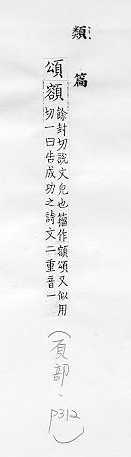 類篇
頌額
餘封切說文皃也籀作額頌又似用
切一曰告成功之詩文二重音一
（頁部．p312）